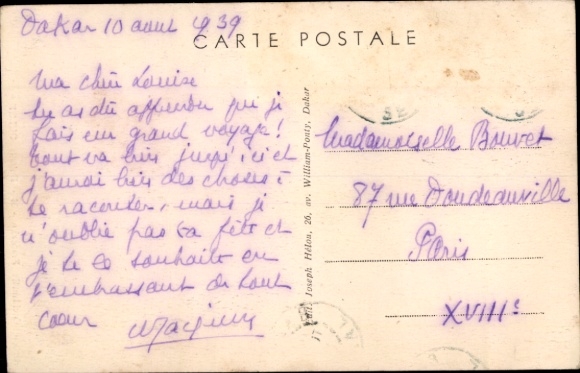 Dakar 10 août 1939
CARTE POSTALE
Ma chère Louise
tu as dû apprendre que je
fais un grand voyage!
tout va bien jusqu'ici et
j'aurai bien des choses à
te raconter, mais je
n'oublie pas ta fête et
je te la souhaite en
t'embrassant de tout
coeur
Edit. Joseph Hélou, 26, av. William-Ponty, Dakar
Mademoiselle Bouvet
87 rue Doudeauville
Paris
XVIIIe